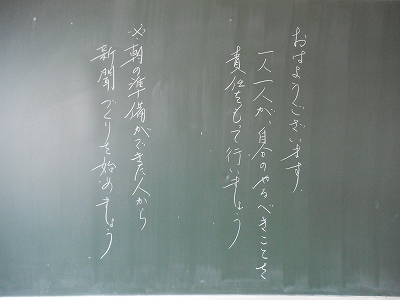 おはようございます。
一人一人が、自分のやるべきことを
責任をもって行いましょう
※朝の準備ができた人から
新聞づくりを始めましょう